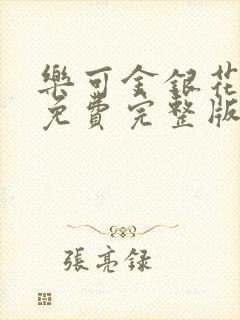 樂可金銀花
免費完整版
張亮録